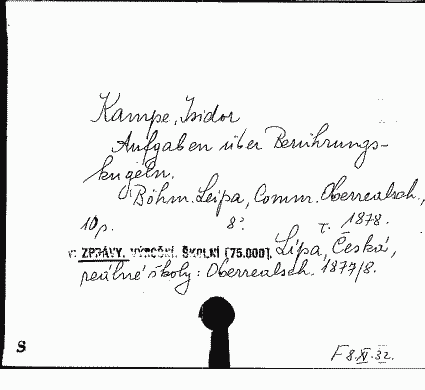 Kampe, Isidor
Aufgaben über Berührungs-
kugeln.
Böhm. Leipa, Comm. Oberrealsch.,
10 p. 8°. r. 1878.
v: ZPRÁVY. VÝROČNÍ. ŠKOLNÍ (75.000). Lípa, Česká,
reálné školy: Oberrealsch. 1877/8.
S
F 8.XI.32.